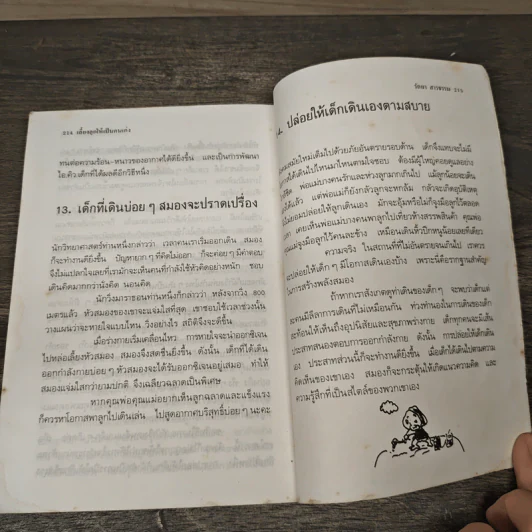 214 เลี้ยงลูกให้เป็นคนเก่ง
ทนต่อความร้อน-หนาวของอากาศได้ดียิ่งขึ้น และเป็นการพัฒนา
ไอ.คิว.เด็กที่ได้ผลดีอีกวิธีหนึ่ง
13. เด็กที่เดินบ่อย ๆ สมองจะปราดเปรื่อง
นักวิทยาศาสตร์ท่านหนึ่งกล่าวว่า เวลาคนเราเริ่มออกเดิน สมอง
ก็จะทำงานดียิ่งขึ้น ปัญหายาก ๆ ที่คิดไม่ออก ก็จะค่อย ๆ มีคำตอบ
จึงไม่แปลกใจเลยที่เรามักจะเห็นคนที่กำลังใช้หัวคิดอย่างหนัก ชอบ
เดินคิดมากกว่านั่งคิด นอนคิด
นักวิ่งมาราธอนท่านหนึ่งก็กล่าวว่า หลังจากวิ่ง 800
เมตรแล้ว หัวสมองของเขาจะแจ่มใสที่สุด เขาชอบใช้เวลาช่วงนั้น
วางแผนว่าจะหายใจแบบไหน วิ่งอย่างไร สถิติจึงจะดีขึ้น
เมื่อร่างกายเริ่มเคลื่อนไหว การหายใจจะนำออกซิเจน
ไปหล่อเลี้ยงหัวสมอง สมองจึงสดชื่นยิ่งขึ้น ดังนั้น เด็กที่ได้เดิน
ออกกำลังกายบ่อย ๆ หัวสมองจะได้รับออกซิเจนอยู่เสมอ ทำให้
สมองแจ่มใสกว่ายามปกติ จึงเฉลียวฉลาดเป็นพิเศษ
หากคุณพ่อคุณแม่อยากเห็นลูกฉลาดและแข็งแรง
ก็ควรหาโอกาสพาลูกไปเดินเล่น ไปสูดอากาศบริสุทธิ์บ่อย ๆ นะคะ
รัตนา 215
4. ปล่อยให้เด็กเดินเองตามสบาย
สมัยใหม่เต็มไปด้วยภัยอันตรายรอบด้าน เด็กจึงแทบจะไม่มี
ได้เดินไปไหนมาไหนตามใจชอบ ต้องมีผู้ใหญ่คอยดูแลอย่าง
ชิด พ่อแม่บางคนรักและห่วงลูกมากเกินไป แม้ลูกน้อยจะเดิน
ได้แล้ว แต่พ่อแม่ก็ยังกลัวลูกจะหกล้ม กลัวจะเกิดอุบัติเหตุ
ไม่ยอมปล่อยให้ลูกเดินเอง มักจะอุ้มหรือไม่ก็จูงมือลูกไว้ตลอด
เคยเห็นพ่อแม่บางคนพาลูกไปเที่ยวห้างสรรพสินค้า คุณพ่อ
แม่จูงมือลูกไว้คนละข้าง เหมือนเดินหิ้วปีกหนูน้อยเลยทีเดียว
ความจริง ในสถานที่ที่ไม่อันตรายจนเกินไป เราควร
จะปล่อยให้เด็ก ๆ มีโอกาสเดินเองบ้าง เพราะนี่คือรากฐานสำคัญ
ในการสร้างพลังสมอง
ถ้าหากเราสังเกตดูท่าเดินของเด็ก ๆ จะพบว่าเด็กแต่
ละคนมีลีลาการเดินที่ไม่เหมือนกัน ท่วงทำนองในการเดินของเด็ก
จะสะท้อนให้เห็นถึงอุปนิสัยและสุขภาพร่างกาย เด็กทุกคนจะมีเส้น
ประสาทสนองตอบการออกกำลังกาย ดังนั้น การปล่อยให้เด็กเดิน
เอง ประสาทส่วนนี้ก็จะทำงานดียิ่งขึ้น เมื่อเด็กได้เดินไปตามความ
คิดเห็นของเขาเอง สมองก็จะกระตุ้นให้เกิดแนวความคิด และ
ความรู้สึกที่เป็นสไตล์ของพวกเขาเอง